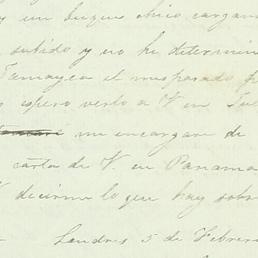 y un buque chico cargan
subido y no he determin
Jamayca el mes pasado p
espero verlo a V en Jue
me encargare de
carta de V. en Panama
decirme lo que hay sobr
Londres 5 de Febrero